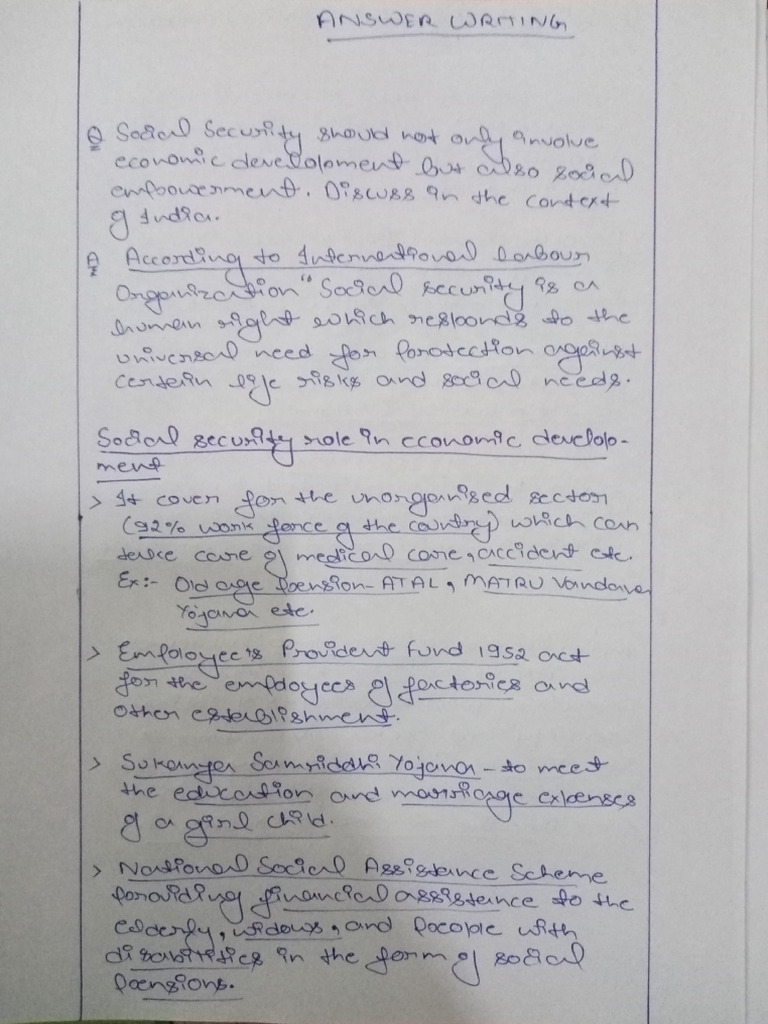 ANSWER WRITING
Q Social Security should not only involve
economic development but also social
empowerment. Discuss in the context
of India.
A According to International Labour
Organization "Social security is a
human right which responds to the
universal need for protection against
certain life risks and social needs.
Social security role in economic develop-
ment
> It cover for the unorganised sector
(92% work force of the country) which can
take care of medical care, accident etc.
Ex:- Old age pension- ATAL, MATRU Vandana
Yojana etc.
> Employee's Provident Fund 1952 act
for the employees of factories and
other establishment.
> Sukanya Samriddhi Yojana - to meet
the education and marriage expenses
of a girl child.
> National Social Assistance Scheme
providing financial assistance to the
elderly, widows, and people with
disabilities in the form of social
pensions.